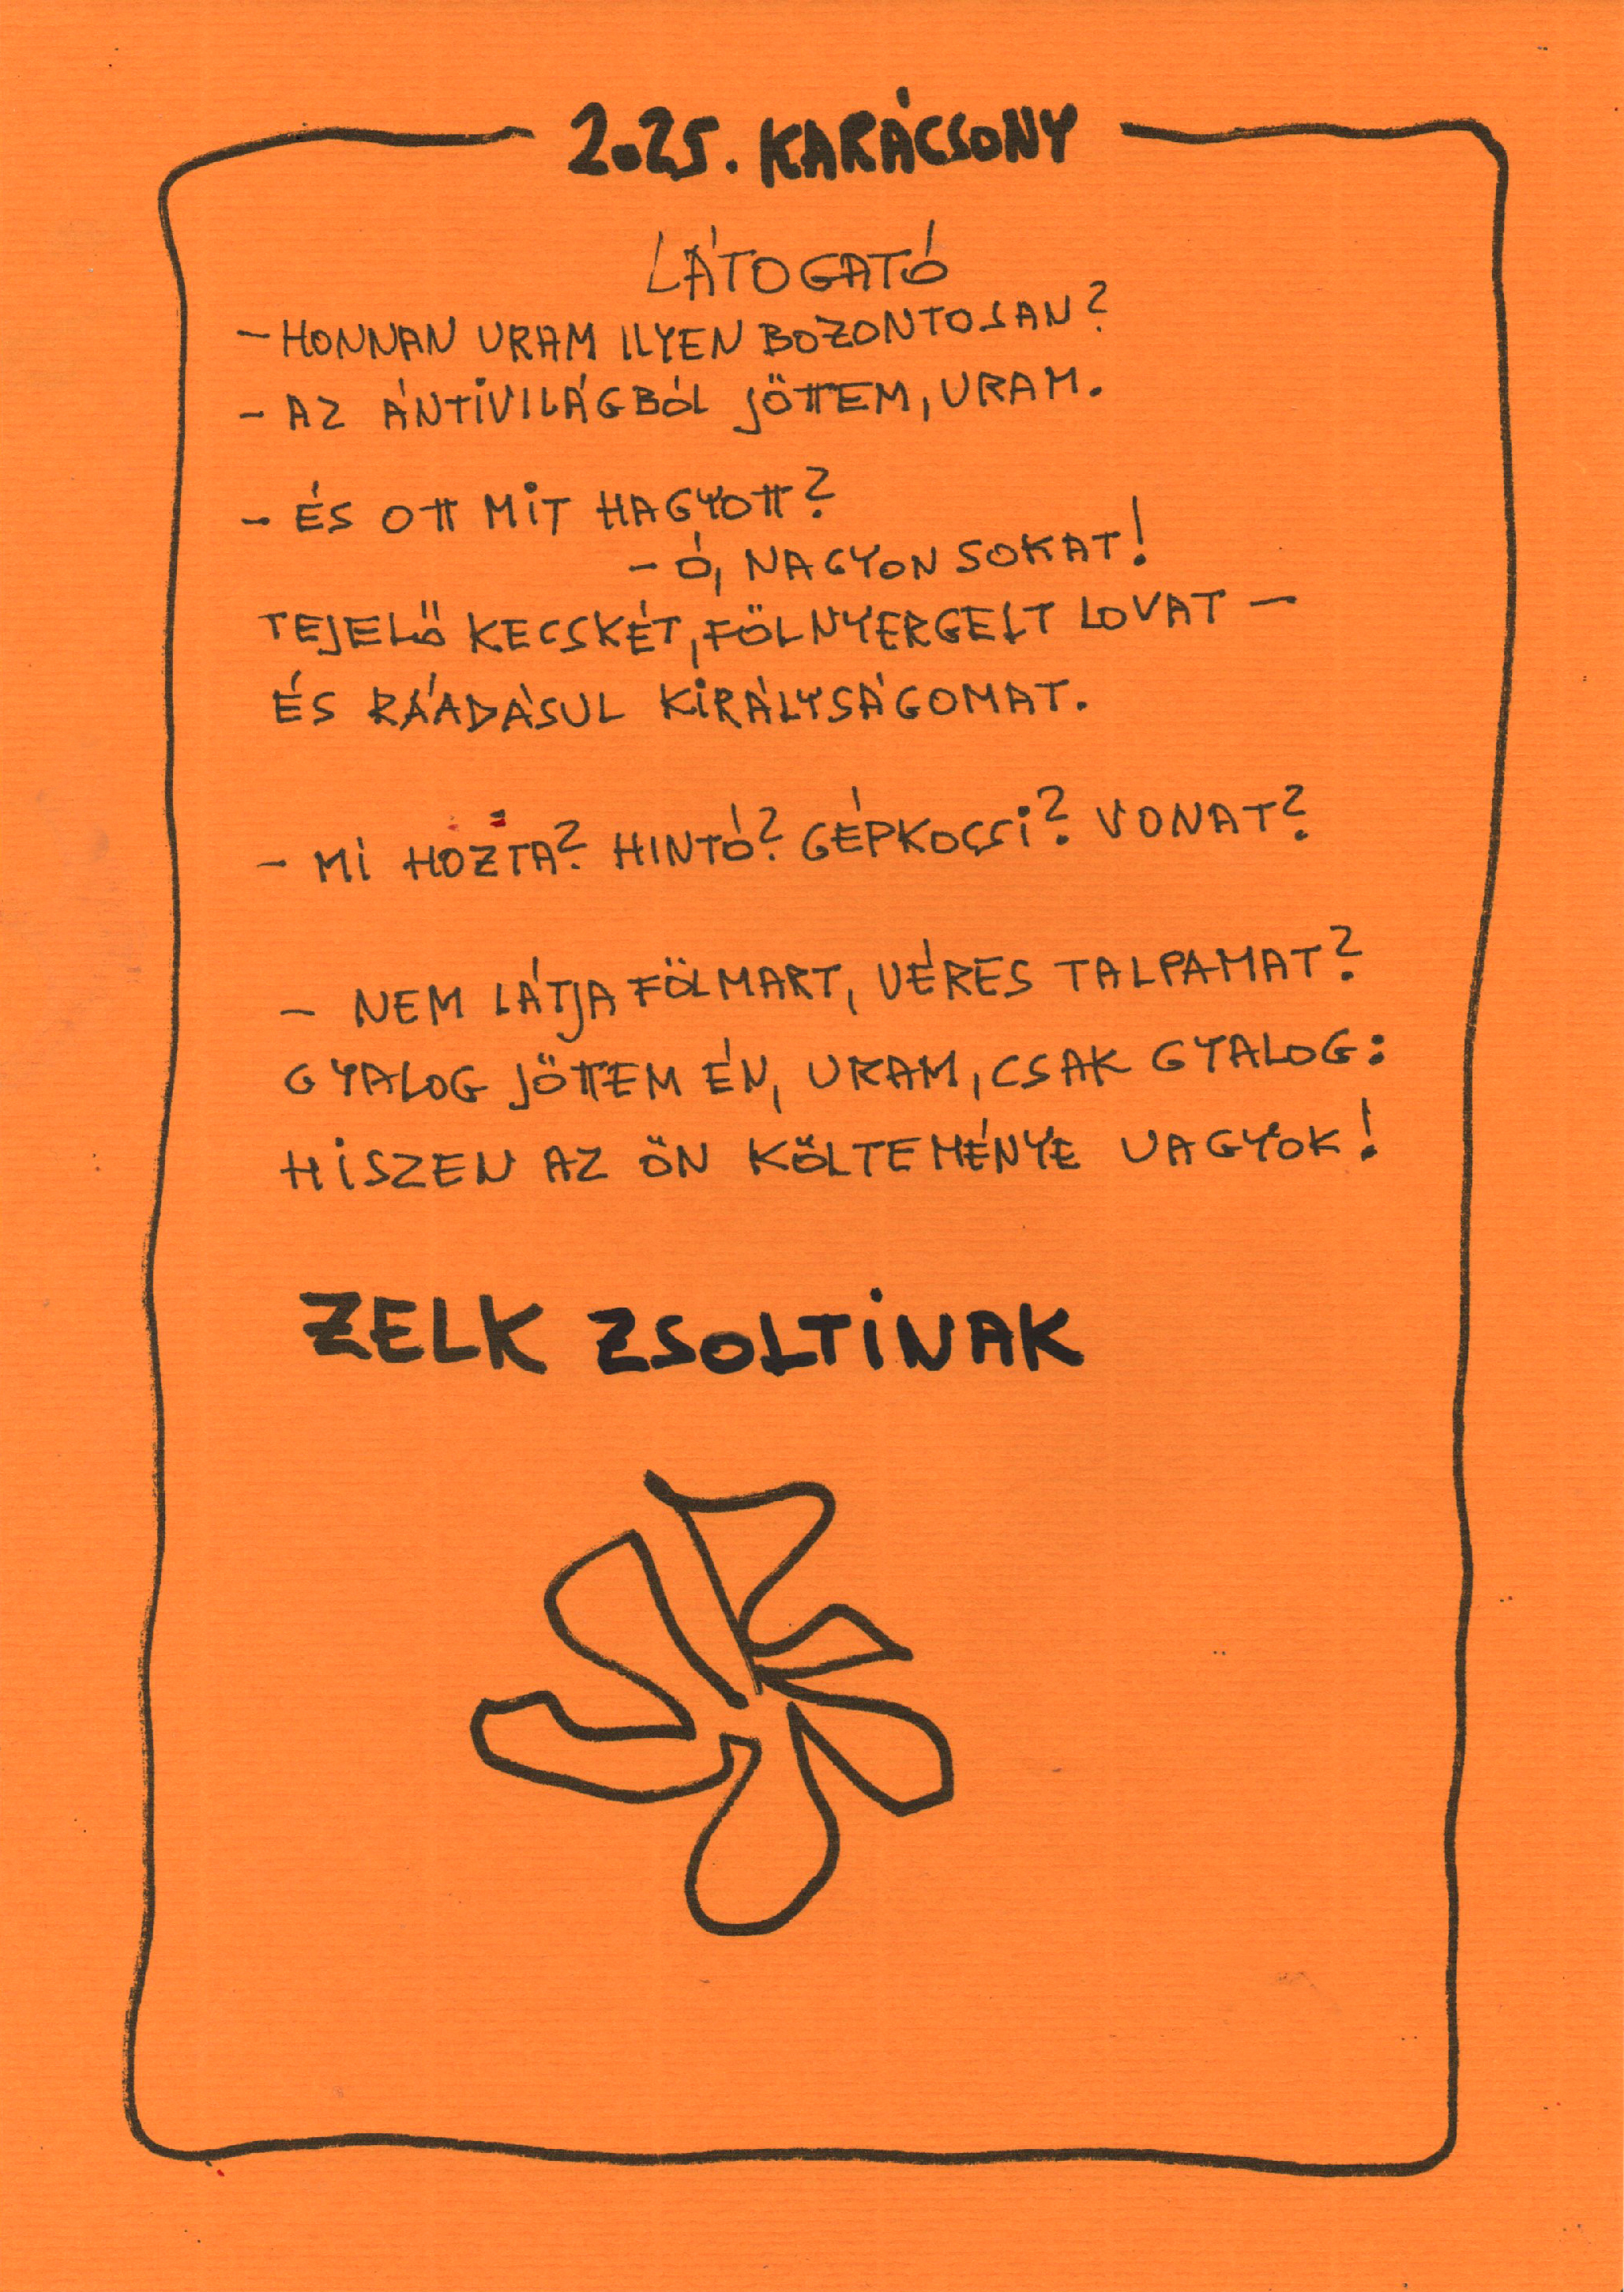 2025. KARÁCSONY
LÁTOGATÓ
- HONNAN URAM ILYEN BOZONTOSAN?
- AZ ÁNTIVILÁGBÓL JÖTTEM, URAM.
- ÉS OTT MIT HAGYOTT?
- Ó, NAGYON SOKAT!
TEJELŐ KECSKÉT, FÖLNYERGELT LOVAT -
ÉS RÁADÁSUL KIRÁLYSÁGOMAT.
- MI HOZTA? HINTÓ? GÉPKOCSI? VONAT?
- NEM LÁTJA FÖLMART, VÉRES TALPAMAT?
GYALOG JÖTTEM ÉN, URAM, CSAK GYALOG:
HISZEN AZ ÖN KÖLTEMÉNYE VAGYOK!
ZELK ZSOLTINAK